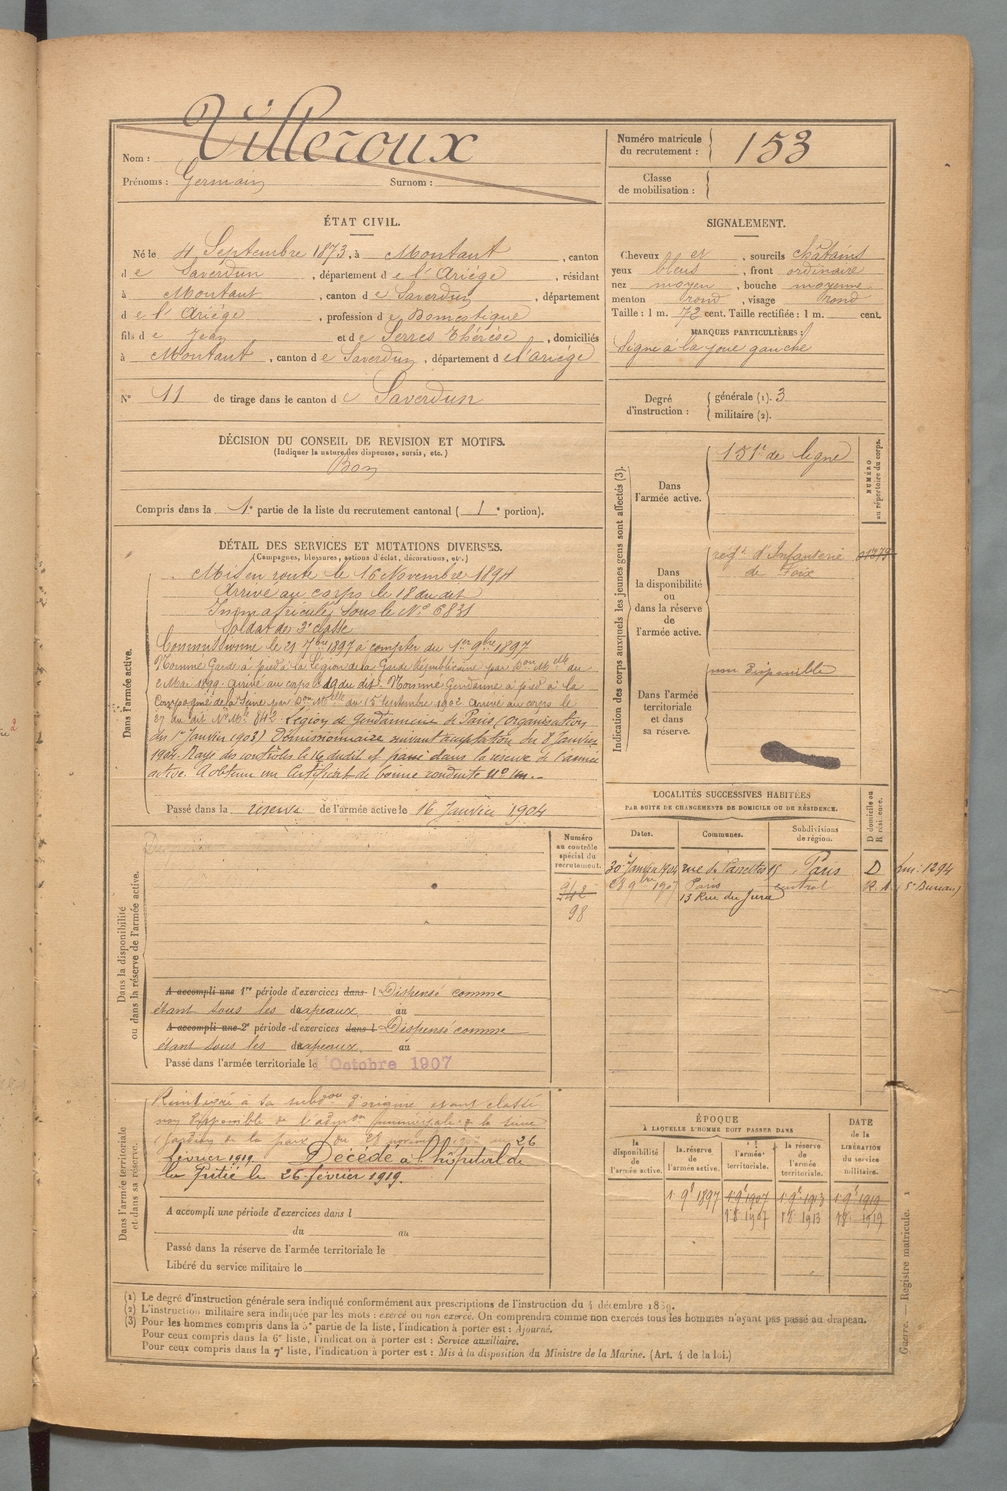 Nom : Villeroux
Prénoms : Germain Surnom :
Numéro matricule du recrutement : 153
Classe de mobilisation :
ÉTAT CIVIL.
Né le 4 Septembre 1873, à Montaut, canton
de Saverdun, département de l'Ariège, résidant
à Montaut, canton de Saverdun, département
de l'Ariège, profession de Domestique
fils de Jean et de Serres Thérèse, domiciliés
à Montaut, canton de Saverdun, département de l'Ariège
N° 11 de tirage dans le canton de Saverdun
SIGNALEMENT.
Cheveux et, sourcils châtains
yeux bleus, front ordinaire
nez moyen, bouche moyenne
menton rond, visage rond
Taille : 1 m. 72 cent. Taille rectifiée : 1 m. cent.
MARQUES PARTICULIÈRES :
Signe à la joue gauche
Degré d'instruction : générale (1). 3
militaire (2).
DÉCISION DU CONSEIL DE REVISION ET MOTIFS.
(Indiquer la nature des dispenses, sursis, etc.)
Bon
Compris dans la 1e partie de la liste du recrutement cantonal (1e portion).
DÉTAIL DES SERVICES ET MUTATIONS DIVERSES.
(Campagnes, blessures, actions d'éclat, décorations, etc.)
Dans l'armée active.
Mis en route le 16 Novembre 1894
Arrivé au corps le 18 du dit
Immatriculé sous le N° 6831
Soldat de 2e classe
le 21 7bre 1897 à compter du 1er 9bre 1897
Nommé Garde à pied à la Légion de la Garde Républicaine par Don Melle du
2 Mai 1899. Arrivé au corps le 19 du dit. Nommé Gendarme à pied à la
Compagnie de la Seine par Don Melle du 15 septembre 1902. Arrivé au corps le
27 du dit. N° Mle 842. Légion de Gendarmerie de Paris (organisation
du 1er Janvier 1903) Démissionnaire suivant acceptation du 8 Janvier
1904. Rayé des contrôles le 16 dudit et passé dans la réserve de l'armée
active. A obtenu un certificat de bonne conduite
Passé dans la réserve de l'armée active le 16 Janvier 1904
Indication des corps auxquels les jeunes gens sont affectés (3).
NUMÉRO au répertoire du corps.
Dans l'armée active.
151e de ligne
Dans la disponibilité ou dans la réserve de l'armée active.
regt d'Infanterie
de Foix
Dans l'armée territoriale et dans sa réserve.
non disponible
LOCALITÉS SUCCESSIVES HABITÉES
PAR SUITE DE CHANGEMENTS DE DOMICILE OU DE RÉSIDENCE.
D domicile ou R résidence.
Dates. Communes. Subdivisions de région.
30 Janvier 1904 rue de 15 Paris D
9bre 1907 Paris central R.
13 Rue du Jura
(5e Bureau)
Dans la disponibilité ou dans la réserve de l'armée active.
Numéro au contrôle spécial du recrutement.
98
A accompli une 1re période d'exercices dans l Dispensé comme
étant sous les drapeaux au
A accompli une 2e période d'exercices dans l Dispensé comme
étant sous les drapeaux au
Passé dans l'armée territoriale le 1 Octobre 1907
Dans l'armée territoriale et dans sa réserve.
Réintégré à sa subdon d'origine étant classé
non disponible de l'admon
gardien de la paix du 26
février 1919 Décédé à l'hôpital de
la Pitié le 26 février 1919.
A accompli une période d'exercices dans l
du au
Passé dans la réserve de l'armée territoriale le
Libéré du service militaire le
ÉPOQUE
À LAQUELLE L'HOMME DOIT PASSER DANS
DATE de la LIBÉRATION du service militaire.
la disponibilité de l'armée active.
la réserve de l'armée active.
l'armée territoriale.
la réserve de l'armée territoriale.
1 9b 1897 1 9b 1907 1 9b 1913 1 9b 1919
1907 1913 1919
(1) Le degré d'instruction générale sera indiqué conformément aux prescriptions de l'instruction du 4 décembre 1889.
(2) L'instruction militaire sera indiquée par les mots : exercé ou non exercé. On comprendra comme non exercés tous les hommes n'ayant pas passé au drapeau.
(3) Pour les hommes compris dans la 5e partie de la liste, l'indication à porter est : Ajourné.
Pour ceux compris dans la 6e liste, l'indication à porter est : Service auxiliaire.
Pour ceux compris dans la 7e liste, l'indication à porter est : Mis à la disposition du Ministre de la Marine. (Art. 4 de la loi.)
Guerre. Registre matricule. 1